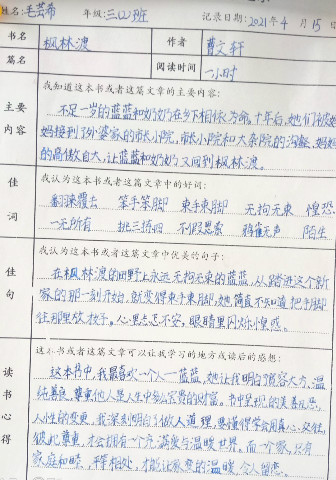 姓名:毛芸希 年级:三(2)班 记录日期:2021年4月15日
书名 枫林渡 作者 曹文轩
篇名 阅读时间 一小时
主要内容
我知道这本书或者这篇文章的主要内容:
不足一岁的蓝蓝和奶奶在乡下相依为命,十年后,她们被妈
妈接到了外婆家的市长小院,市长小院和大杂院的沟壑,妈妈
的高傲自大,让蓝蓝和奶奶又回到枫林渡。
佳词
我认为这本书或者这篇文章中的好词:
翻来覆去 笨手笨脚 束手束脚 无拘无束 惶恐
一无所有 挑三拣四 不假思索 鸦雀无声 陌生
佳句
我认为这本书或者这篇文章中优美的句子:
在枫林渡的田野上永远无拘无束的蓝蓝,从踏进这个新
家的那一刻开始,就变得束手束脚,她简直不知道把手脚
往那里放才好。心里忐忑不安,眼睛里闪烁惶惑。
读书心得
这本书或者这篇文章可以让我学习的地方或读后的感想:
这本书中,我最喜欢一个人——蓝蓝,她让我明白了宽容大方、温
纯善良、尊重他人是人生中多么宝贵的财富。书中呈现的美善反思,
人性的尊重,我深刻明白了做人道理,要懂得学会用真心交往,
彼此尊重,才会拥有一个充满爱与温暖世界。而一个家,只有
家庭和睦,平等相处,才能让家变的温暖,令人留恋。